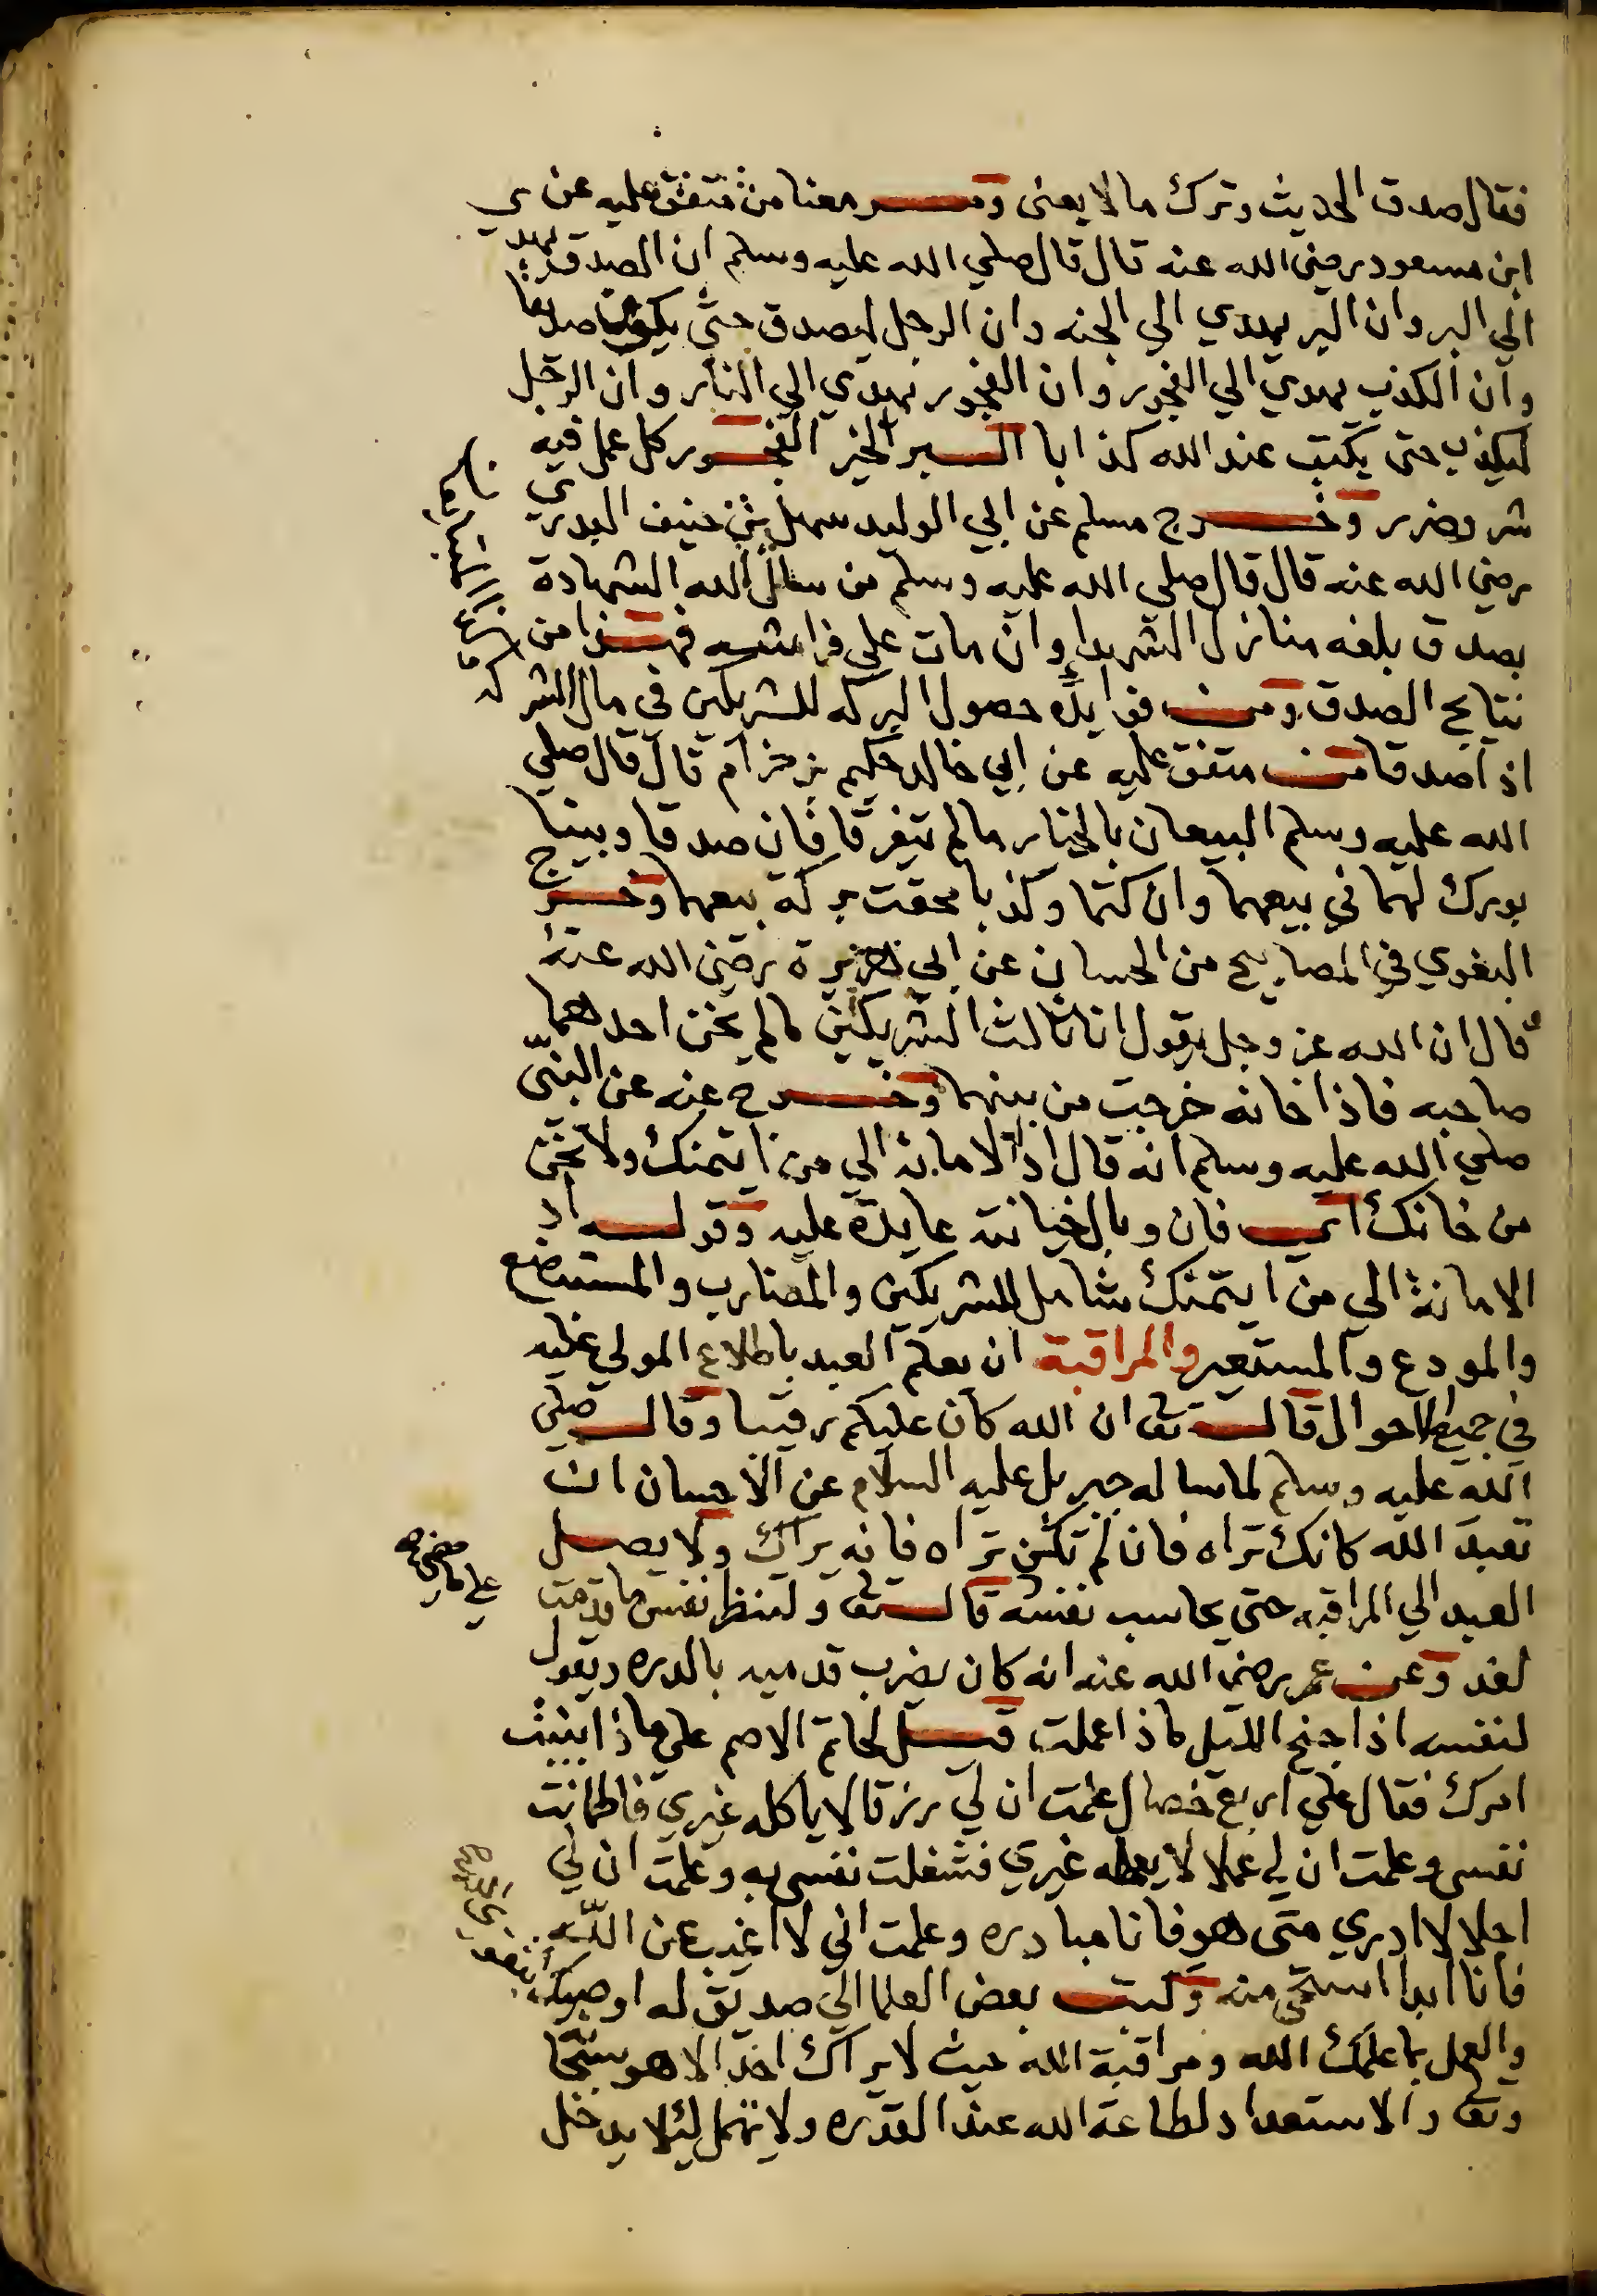 فقال صدق الحديث وترك ما لا يعنى ومـر معنا من متفق عليه عن
ابن مسعود رضي الله عنه قال قال صلي الله عليه وسلم ان الصدق يهدي
الي البر وان البر يهدي الي الجنه وان الرجل ليصدق حتى يكون صديقا
وان الكذب يهدي الي الفجور وان الفجور يهدي الي النار وان الرجل
ليكذب حتى يكتب عند الله كذابا البر الخير الفجور كل عمل فيه
شر وضرر وخرج مسلم عن ابي الوليد سهل بن حنيف البدري
رضي الله عنه قال قال صلي الله عليه وسلم من سال الله الشهادة
بصدق بلغه منازل الشهدا وان مات علي فراشه فهذا من
نتايج الصدق ومن فوايده حصول البركه للشريكين في مال الشركه
اذا صدقا من متفق عليه عن ابي خالد حكيم بن حزام قال قال صلي
الله عليه وسلم البيعان بالخيار ما لم يتفرقا فان صدقا وبينا
بورك لهما في بيعهما وان كتما وكذبا محقت بركة بيعهما وخرج
البغوي في المصابيح من الحسان عن ابي هريرة رضي الله عنه
قال ان الله عز وجل يقول انا ثالث الشريكين ما لم يخن احدهما
صاحبه فاذا خانه خرجت من بينهما وخرج عنه عن النبي
صلي الله عليه وسلم انه قال اد الامانة الي من ايتمنك ولا تخن
من خانك اي فان وبال الخيانة عايدة عليه وقوله اد
الامانة الي من ايتمنك شامل للشريكين والمضارب والمستبضع
والمودع والمستعير والمراقبة ان يعلم العبد باطلاع المولي عليه
في جميع الاحوال قال تع ان الله كان عليكم رقيبا وقال صلي
الله عليه وسلم لما ساله جبريل عليه السلام عن الاحسان ان
تعبد الله كانك تراه فان لم تكن تراه فانه يراك ولا يصل
العبد الي المراقبه حتى يحاسب نفسه قال تع ولتنظر نفس ما قدمت
لغد وعن عمر رضي الله عنه انه كان يضرب قدميه بالدره ويقول
لنفسه اذا جنح الليل ماذا عملت قيل لحاتم الاصم علي ماذا بنيت
امرك فقال علي اربع خصال علمت ان لي رزقا لا ياكله غيري فاطمانت
نفسي وعلمت ان لي عملا لا يعمله غيري فشغلت نفسي به وعلمت ان لي
اجلا لا ادري متى هو فانا مبادره وعلمت اني لا اغيب عن الله
فانا ابدا استحي منه وكتب بعض العلما الي صديق له اوصيك
والعمل بما علمك الله ومراقبة الله حيث لا يراك احد الا هو
وتع والاستعداد لطاعة الله عند القدره ولا تهمل ليلا يدخل